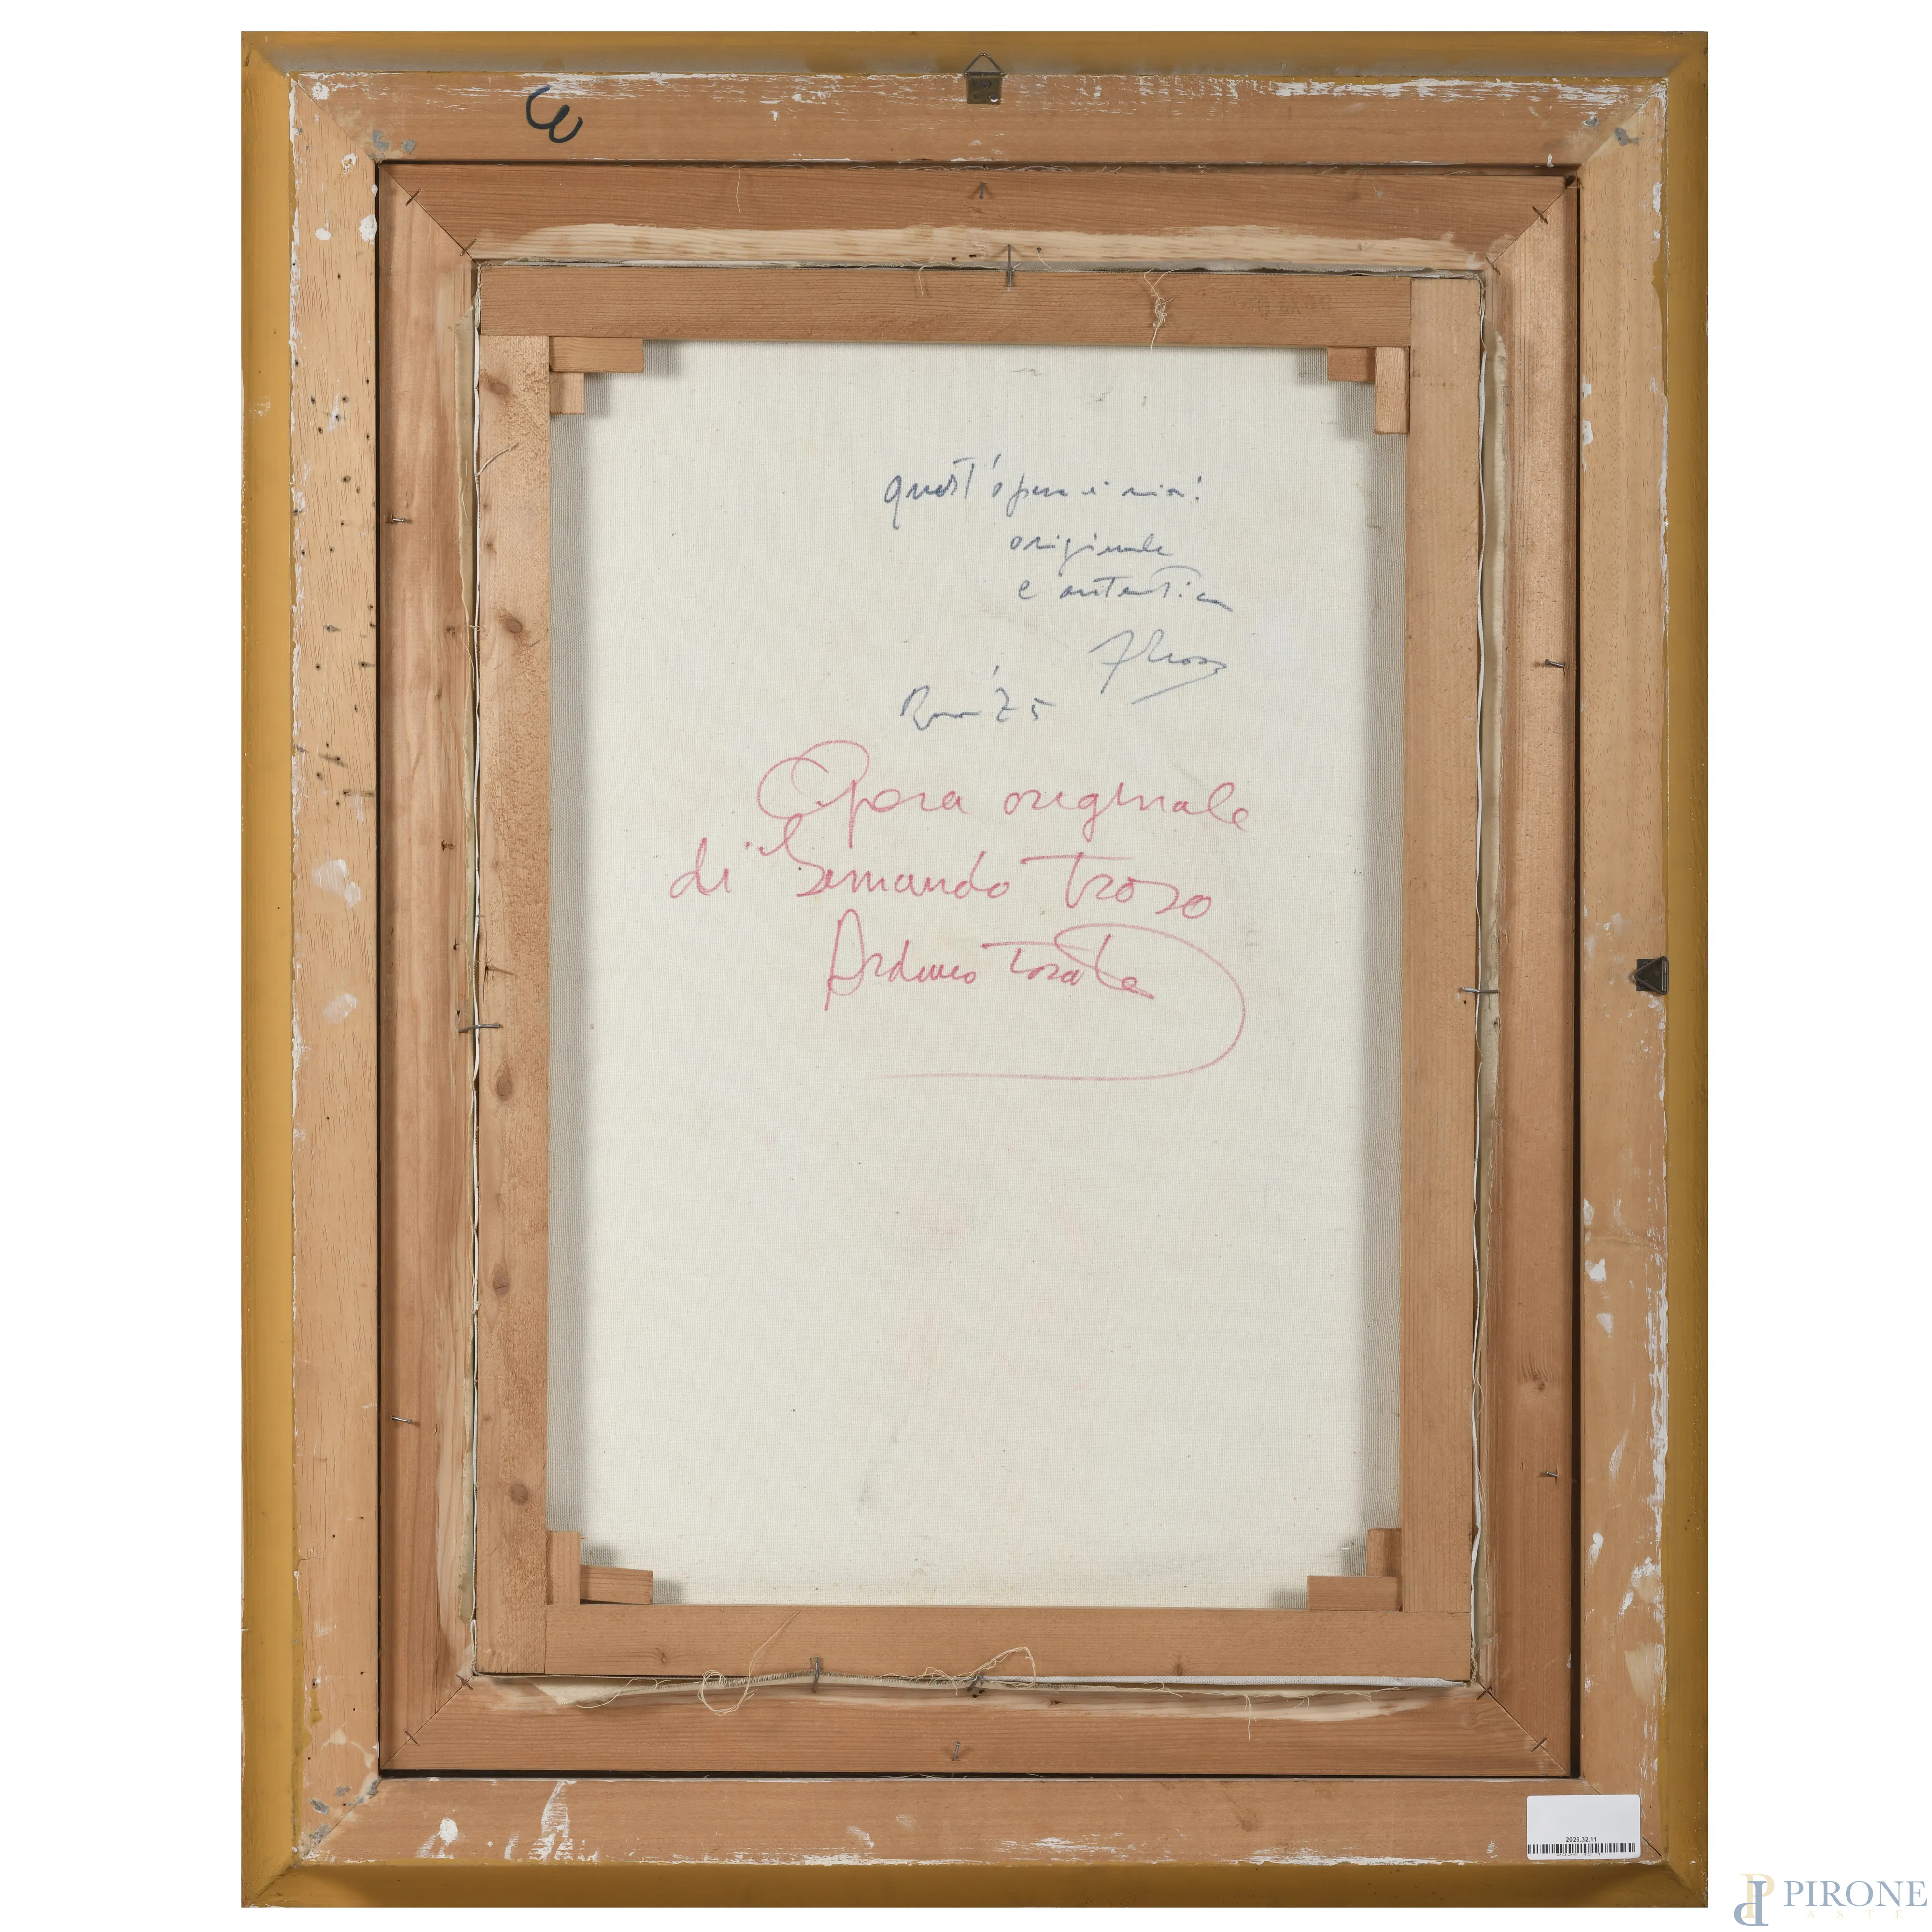 3
quest'opera è mia!
originale
e autentica
Roma '75
Opera originale
di Armando Trozo
Arduino
2026.32.11
PIRONE
ASTE